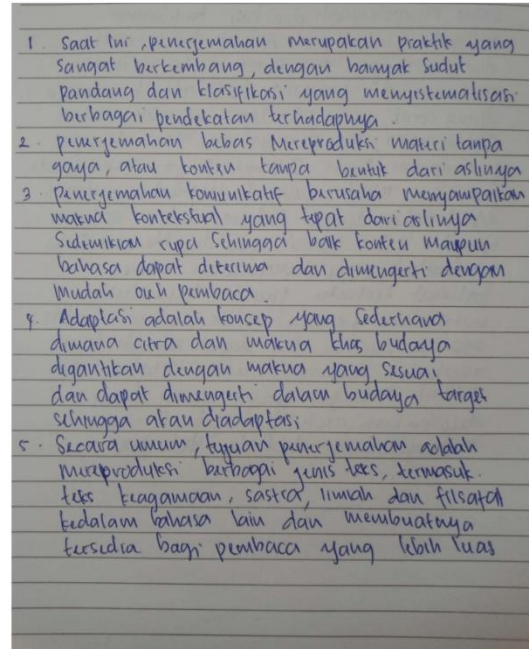 1. Saat ini, penerjemahan merupakan praktik yang
sangat berkembang, dengan banyak sudut
pandang dan klasifikasi yang menyistematisasi
berbagai pendekatan terhadapnya.
2. penerjemahan bebas Mereproduksi materi tanpa
gaya, atau konten tanpa bentuk dari aslinya
3. penerjemahan komunikatif berusaha menyampaikan
makna kontekstual yang tepat dari aslinya
Sedemikian rupa Sehingga baik konten maupun
bahasa dapat diterima dan dimengerti dengan
mudah oleh pembaca.
4. Adaptasi adalah konsep yang Sederhana
dimana citra dan makna khas budaya
digantikan dengan makna yang sesuai
dan dapat dimengerti dalam budaya target
sehingga akan diadaptasi
5. Secara umum, tujuan penerjemahan adalah
mereproduksi berbagai jenis teks, termasuk.
teks keagamaan, sastra, ilmiah dan filsafat
kedalam bahasa lain dan membuatnya
tersedia bagi pembaca yang lebih luas